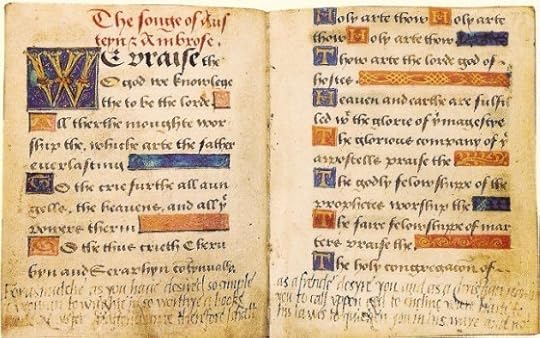 The songe of Aus
teyn & Ambrose.
WE praise the
O god we knowlege
the to be the lorde
All therthe moughte wor
ship the, whiche arte the father
everlasting
To the crie furthe all aun
gells, the heavens, and all yͤ
powers therin
To the thus crieth Cheru
byn and Seraphyn contynually
Forasmutche as you have desired so simple
a woman to wrighte in so worthye a booke
therefore I shall
Holy arte thow Holy arte
thow Holy arte thow
Thow arte the lorde god of
hostes
Heaven and earthe are fulfil
led wͭ the glorie of yͥ magestye
The glorious company of yͤ
appostells praise the
The godly felowshipe of the
prophetes worship the
The faire felowshipe of mar
ters praise the
The holy congregacon of
as a frende desyre you and as a christian
you to call uppon god to encline youre harte to
his lawes to quicken you in his waye and not